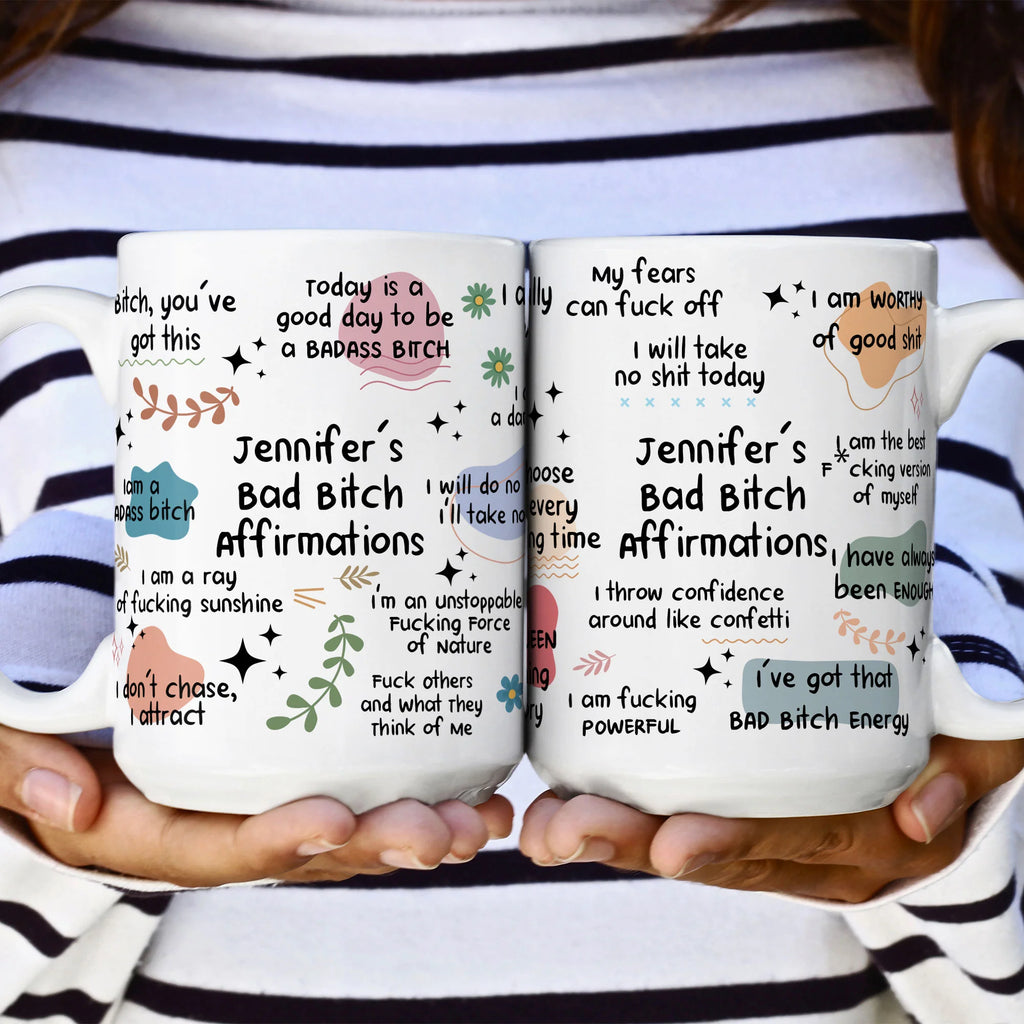 Bitch, you've
got this
Today is a
good day to be
a BADASS BITCH
I am a
BADASS bitch
Jennifer's
Bad Bitch
Affirmations
I will do no
i'll take no
I am a ray
of fucking sunshine
i'm an unstoppable
Fucking Force
of Nature
I don't chase,
I attract
Fuck others
and what they
Think of Me
My fears
can fuck off
I will take
no shit today
I am WORTHY
of good shit
every
time
Jennifer's
Bad Bitch
Affirmations
I am the best
F*cking version
of myself
I have always
been ENOUGH
I throw confidence
around like confetti
I am fucking
POWERFUL
i've got that
BAD Bitch Energy